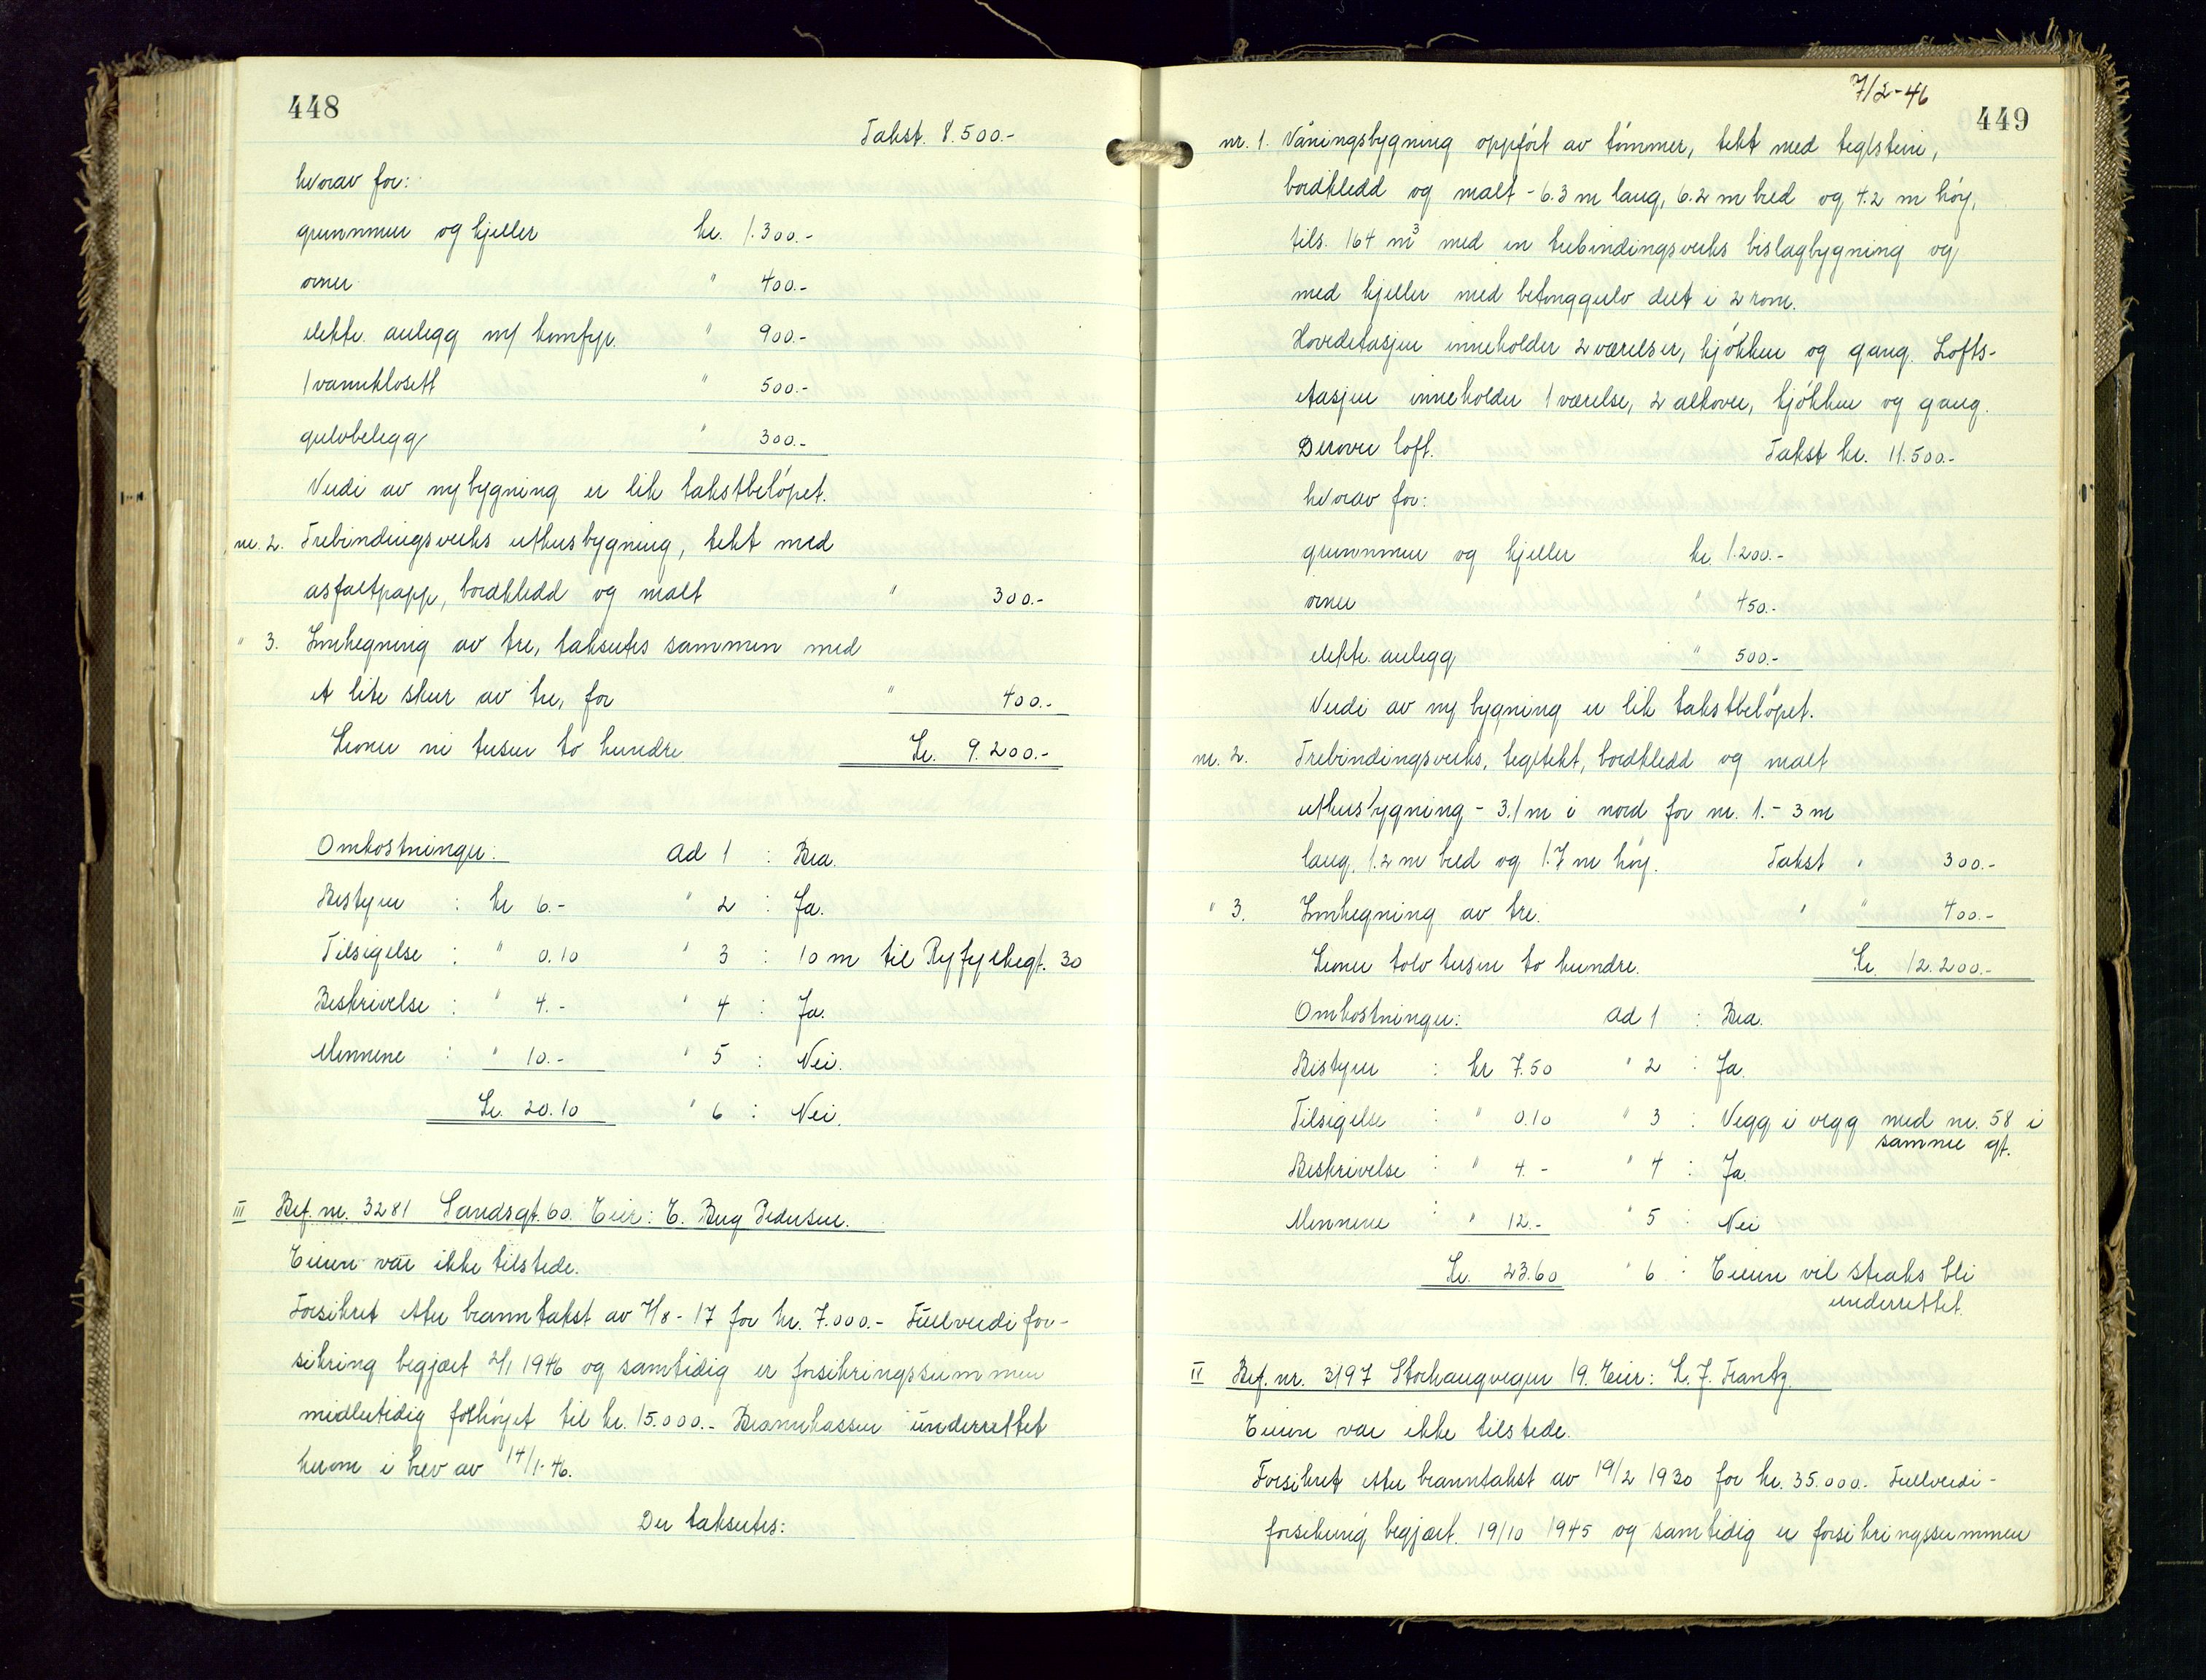 448
Takst. 8.500.-
hvorav for:
grunnmur og kjeller kr. 1.300.-
ovner " 400.-
elektr. anlegg m/ komfyr. " 900.-
1 vannklosett " 500.-
gulvbelegg " 300.-
Verdi av ny bygning er lik takstbeløpet.
nr. 2. Trebindingsverks uthusbygning, tekt med
asfaltpapp, bordkledd og malt " 300.-
" 3. Innhegning av tre, takseres sammen med
et lite skur av tre, for " 400.-
Kroner ni tusen to hundre Kr. 9.200.-
Omkostninger: ad 1 : Bra.
Bestyrer : kr 6.- " 2 : Ja.
Tilsigelse : " 0.10 " 3 : 10 m til Ryfylkegt. 30
Beskrivelse : " 4.- " 4 : Ja.
Mennene : " 10.- " 5 : Nei.
Kr. 20.10 " 6 : Nei.
III Bef. nr. 3281 Sandsgt. 60. Eier: E. Berg Pedersen.
Eieren var ikke tilstede.
Forsikret etter branntakst av 7/8 - 17 for kr. 7.000.- Fullverdifor-
sikring begjært 2/1 1946 og samtidig er forsikringssummen
midlertidig forhøyet til kr. 15.000.- Brannkassen underrettet
herom i brev av 14/1-46.
Der takseres:
7/2-46
449
nr. 1. Våningsbygning oppført av tømmer, tekt med teglstein,
bordkledd og malt - 6.3 m lang, 6.2 m bred og 4.2 m høy,
tils. 164 m³ med en trebindingsverks bislagbygning og
med kjeller med betonggulv delt i 2 rom.
Hovedetasjen inneholder 2 værelser, kjøkken og gang. Lofts-
etasjen inneholder 1 værelse, 2 alkover, kjøkken og gang.
Derover loft. Takst kr. 11.500.-
hvorav for:
grunnmur og kjeller kr 1.200.-
ovner " 450.-
elektr. anlegg " 500.-
Verdi av ny bygning er lik takstbeløpet.
nr. 2. Trebindingsverks, tegltekt, bordkledd og malt
uthusbygning - 3.1 m i nord for nr. 1. - 3 m
lang, 1.2 m bred og 1.7 m høy. Takst " 300.-
" 3. Innhegning av tre. " " 400.-
Kroner tolv tusen to hundre. Kr. 12.200.-
Omkostninger: ad 1 : Bra.
Bestyrer : kr 7.50 " 2 : Ja.
Tilsigelse : " 0.10 " 3 : Vegg i vegg med nr. 58 i
samme gt.
Beskrivelse : " 4.- " 4 : Ja.
Mennene : " 12.- " 5 : Nei
Kr. 23.60 " 6 : Eieren vil straks bli
underrettet.
IV Bef. nr. 3197 Storhaugvegen 19. Eier: K. J. Frantz.
Eieren var ikke tilstede.
Forsikret etter branntakst av 19/2 1930 for kr. 35.000.- Fullverdi-
forsikring begjært. 19/10 1945 og samtidig er forsikringssummen